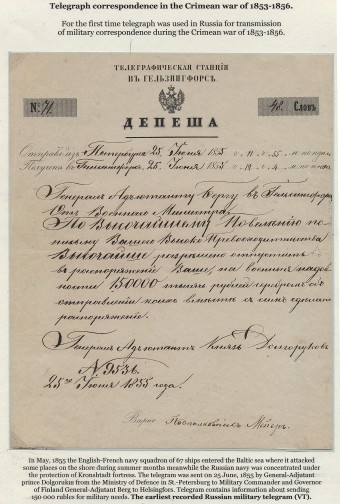 Telegraph correspondence in the Crimean war of 1853-1856.
For the first time telegraph was used in Russia for transmission
of military correspondence during the Crimean war of 1853-1856.
ТЕЛЕГРАФИЧЕСКАЯ СТАНЦІЯ
ВЪ ГЕЛЬЗИНГФОРСѢ.
№ 71 48. Словъ
ДЕПЕША
Отправл. изъ Петербурга 25. Іюня 1855 ч. 11 м. 55
Получена въ Гельсингфорсъ 25. Іюня 1855 ч. м.
Генералъ Адъютанту Бергу въ Гельсингфорсъ
Отъ Военнаго Министра
По Высочайшему Повелѣнію по
письму Вашего Высокопревосходительства
Высочайше разрѣшено отпустить
въ распоряженіе Ваше, на военныя надоб
ности 150000 рублей серебромъ объ
отправленіи коихъ вмѣстѣ съ симъ сдѣлано
распоряженіе.
Генералъ Адъютантъ Князь Долгоруковъ
№ 9538.
25го Іюня 1855 года.
Вѣрно
In May, 1855 the English-French navy squadron of 67 ships entered the Baltic sea where it attacked
some places on the shore during summer months meanwhile the Russian navy was concentrated under
the protection of Kronshtadt fortress. The telegram was sent on 25 June, 1855 by General-Adjutant
prince Dolgorukiin from the Ministry of Defence in St.-Petersburg to Military Commander and Governor
of Finland General-Adjutant Berg to Helsingfors. Telegram contains information about sending
150 000 rubles for military needs. The earliest recorded Russian military telegram (VT).